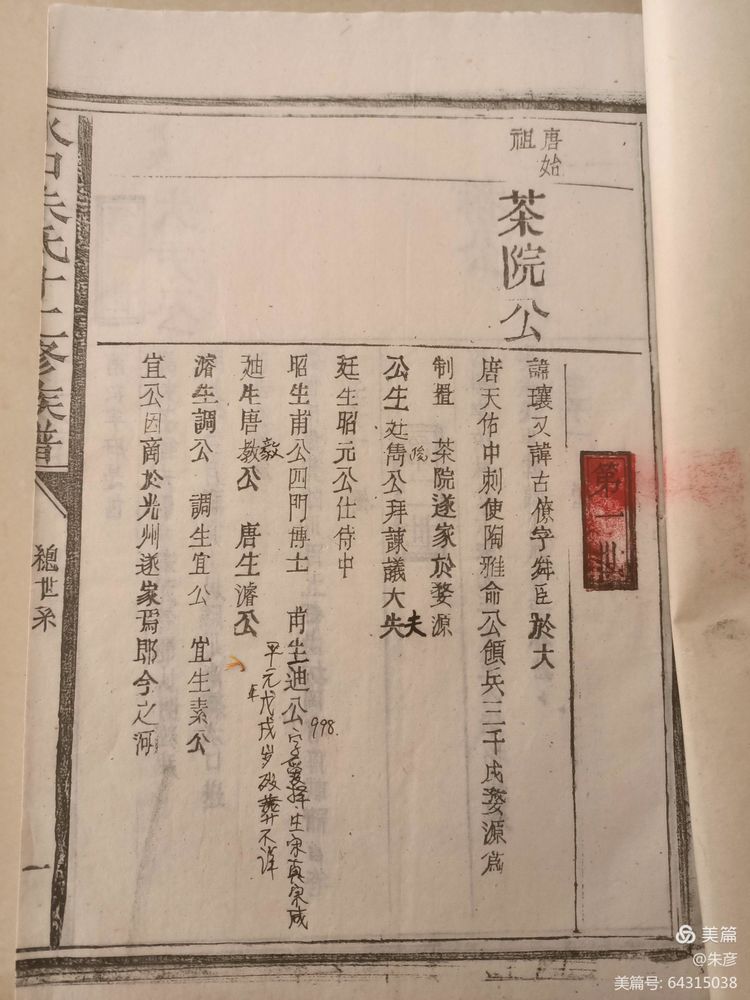 第一世
唐始
祖
茶院公
諱瓌又諱古僚字舜臣於大
唐天佑中刺使陶雅命公領兵三千戍婺源為
制置 茶院遂家於婺源
公生廷雋公拜諫議大失夫
廷生昭元公仕侍中
昭生甫公四門博士 甫生迪公
998.
字爱择生宋真宗咸
平元年戊戌岁殁葬不详
迪生唐教公 唐生濬公
毅
濬生調公 調生宜公 宜生素公
宜公因商於光州遂家焉即今之河
口朱氏十二修族譜
總世系
一
美篇
@朱彦
美篇号: 64315038